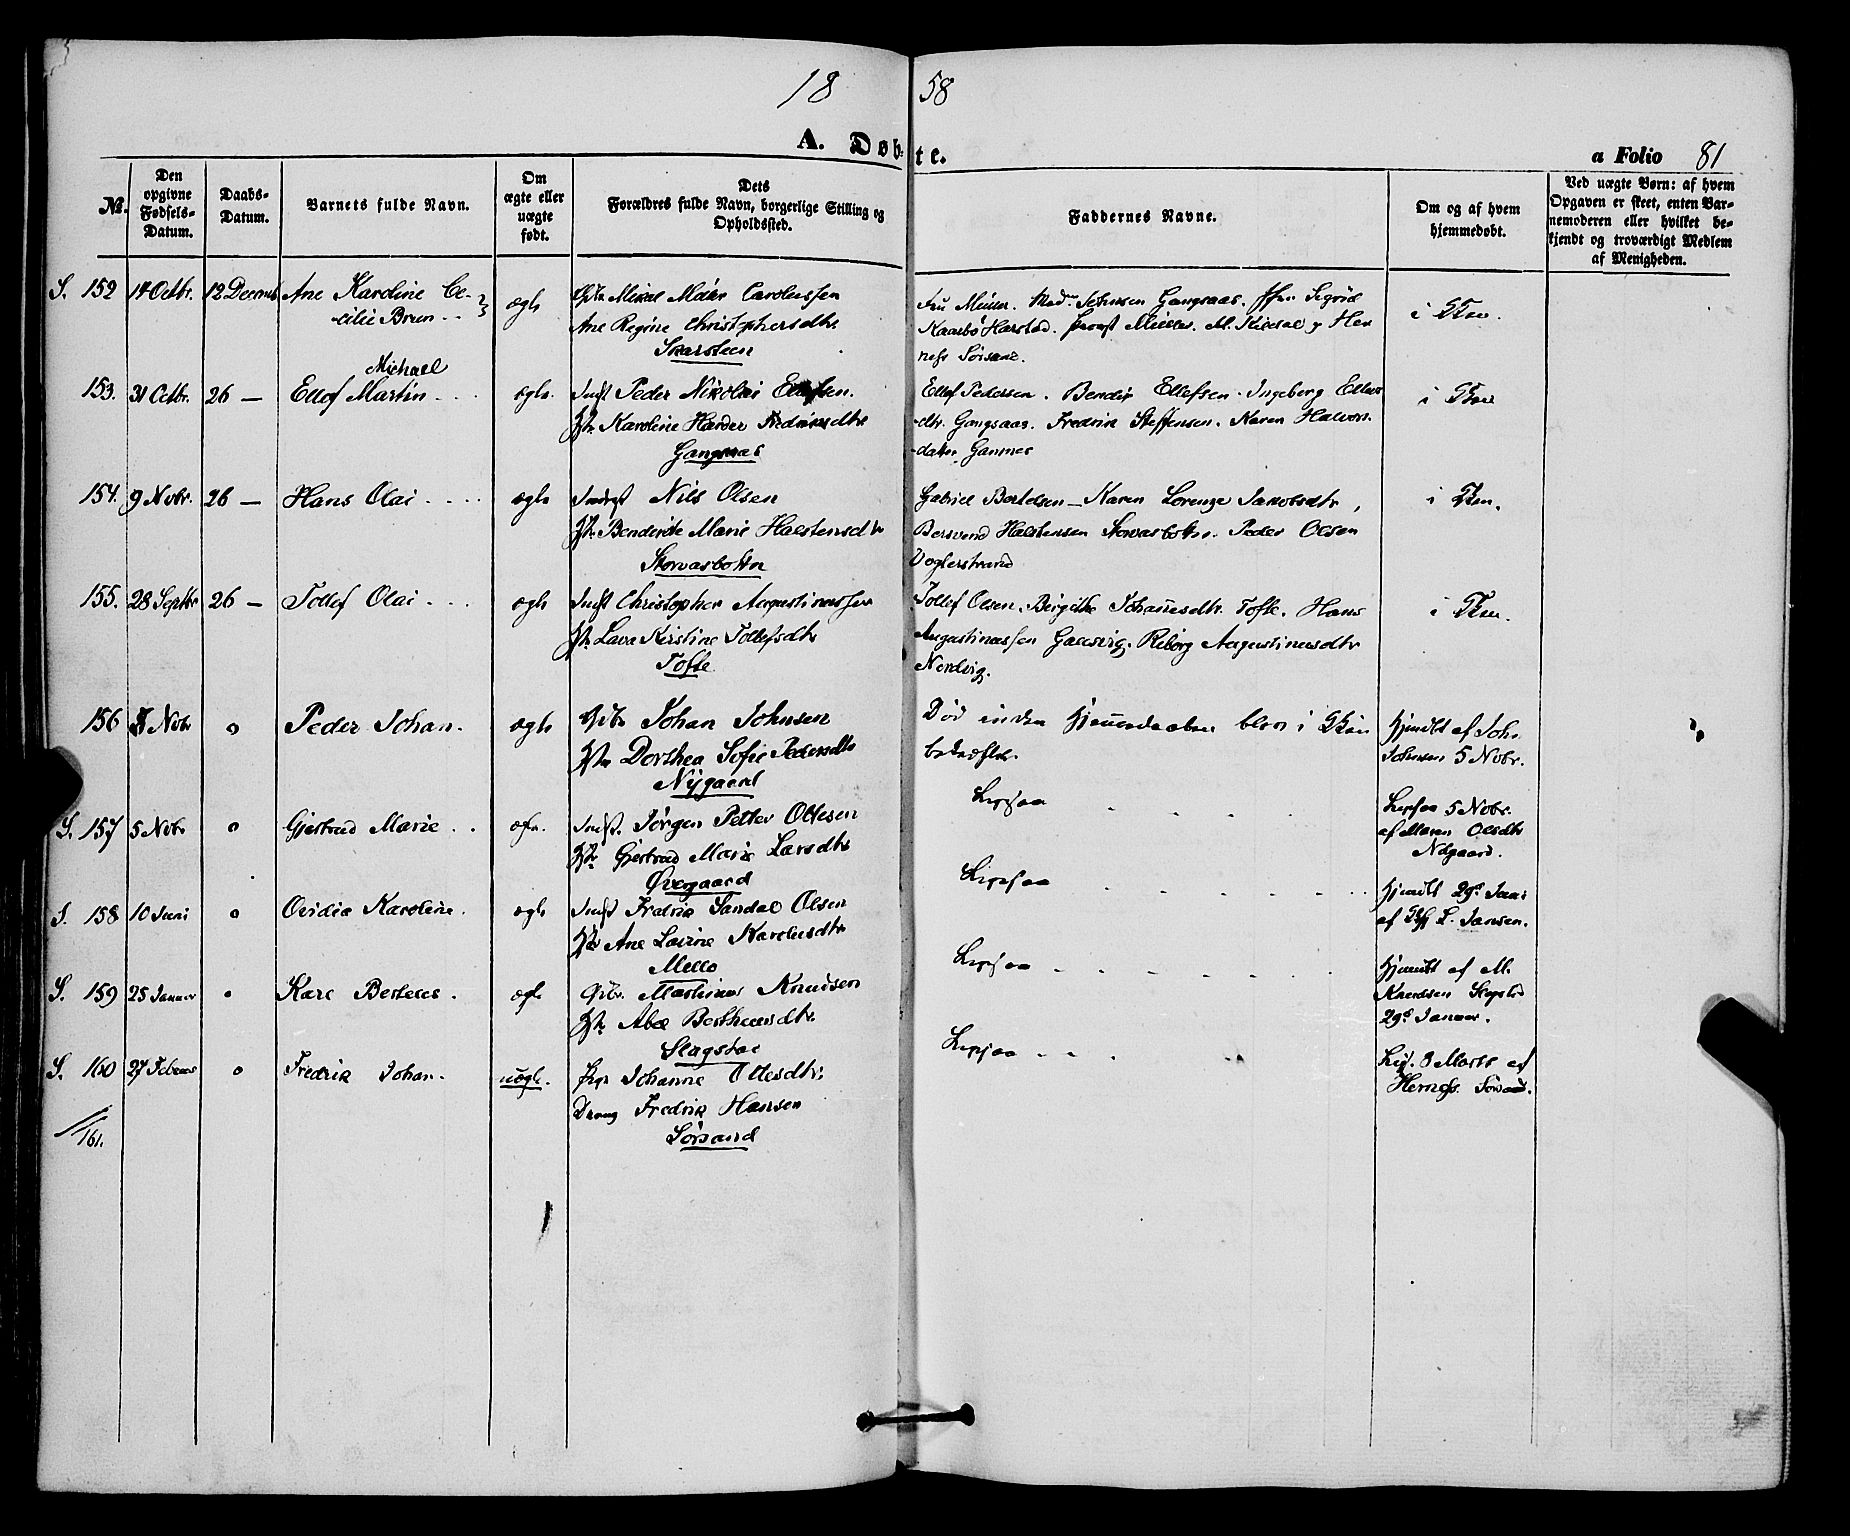 18 58
A. Døbte.
a Folio 81
№.
Den opgivne Fødsels-Datum.
Daabs-Datum.
Barnets fulde Navn.
Om ægte eller uægte født.
Dets Forældres fulde Navn, borgerlige Stilling og Opholdssted.
Faddernes Navne.
Om og af hvem hjemmedøbt.
Ved uægte Børn: af hvem Opgaven er skeet, enten Barnemoderen eller hvilket bekjendt og troværdigt Medlem af Menigheden.
S. 152 14 Octbr. 12 Decmb Ane Karoline Ce- ægte Mikal Carolussen
cilie Brun
Ane Regine Christophersdtr
Skarsteen
Fru Müller. Mad. Johnsen Gangsaas. Sigrid
Kaarbø Harstad. Provst Müller. M. Kildal
Sørsand.
i Kken.
Michael
153. 31 Octbr. 26 — Ellef Martin ægte. Indst Peder Nikolai Ellefsen.
Hst. Karoline Harder
Gangsaas
Ellef Pedersen. Bendix Ellefsen. Ingeborg
dtr. Gangsaas. Fredrik Steffensen. Karen Halvor-
datter Gammes
i Kken
154. 9 Nobr. 26 — Hans Olai ægte Indst Nils Olsen
Hst. Bendikte Marie Halstensdtr
Storvasbotn
Gabriel Bertelsen — Karen Lorenze Jakobsdtr,
Bersvend Halstensen Storvasbotn. Peder Olsen
Voglerstrand
i Kken.
155. 28 Septbr 26 — Tollef Olai ægte Indst Christopher Augustinussen
Hst. Lava Kirstine Tollefsdtr
Tofte
Tollef Olsen. Birgithe Johannesdtr. Tofte. Hans
Augustinussen Gausvig. Riborg Augustinusdtr
Nordvig.
i Kken.
156 Nobr o Peder Johan. ægte Johan Johnsen
Hst. Dorthea Sofie Pedersdtr
Nygaard
Død inden Hjemmedaaben blev i Kken
bekræftet.
Hjemdbt af Joh.
Johnsen 5 Nobr.
S. 157 5 Nobr o Gjertrud Marie ægte. Indst. Jørgen Petter Ottesen
Hst. Gjertrud Marie Larsdtr
Øvergaard
Ligesaa
Ligesaa 5 Nobr.
af Maren Olsdtr
S. 158 10 Juni o Ovidia Karoline. ægte Indst Fredrik Sandal Olsen
Hst Ane Lovine Karolusdtr
Mello
Ligesaa
Hjemdbt
af L. Jansen.
S. 159 25 Januar o Kare Berteus. ægte Martinus Knudsen
Hst. Abel Bertheusdtr.
Slagstad
Ligesaa
Hjemdbt af M.
Knudsen Slagstad
29d Januar.
S. 160 27 Februar o Fredrik Johan. uægte. Pige Johanne Ottesdtr:
Dreng Fredrik Hansen
Sørsand
Ligesaa
Lig. 3 Marts af
Sørsand.
161.